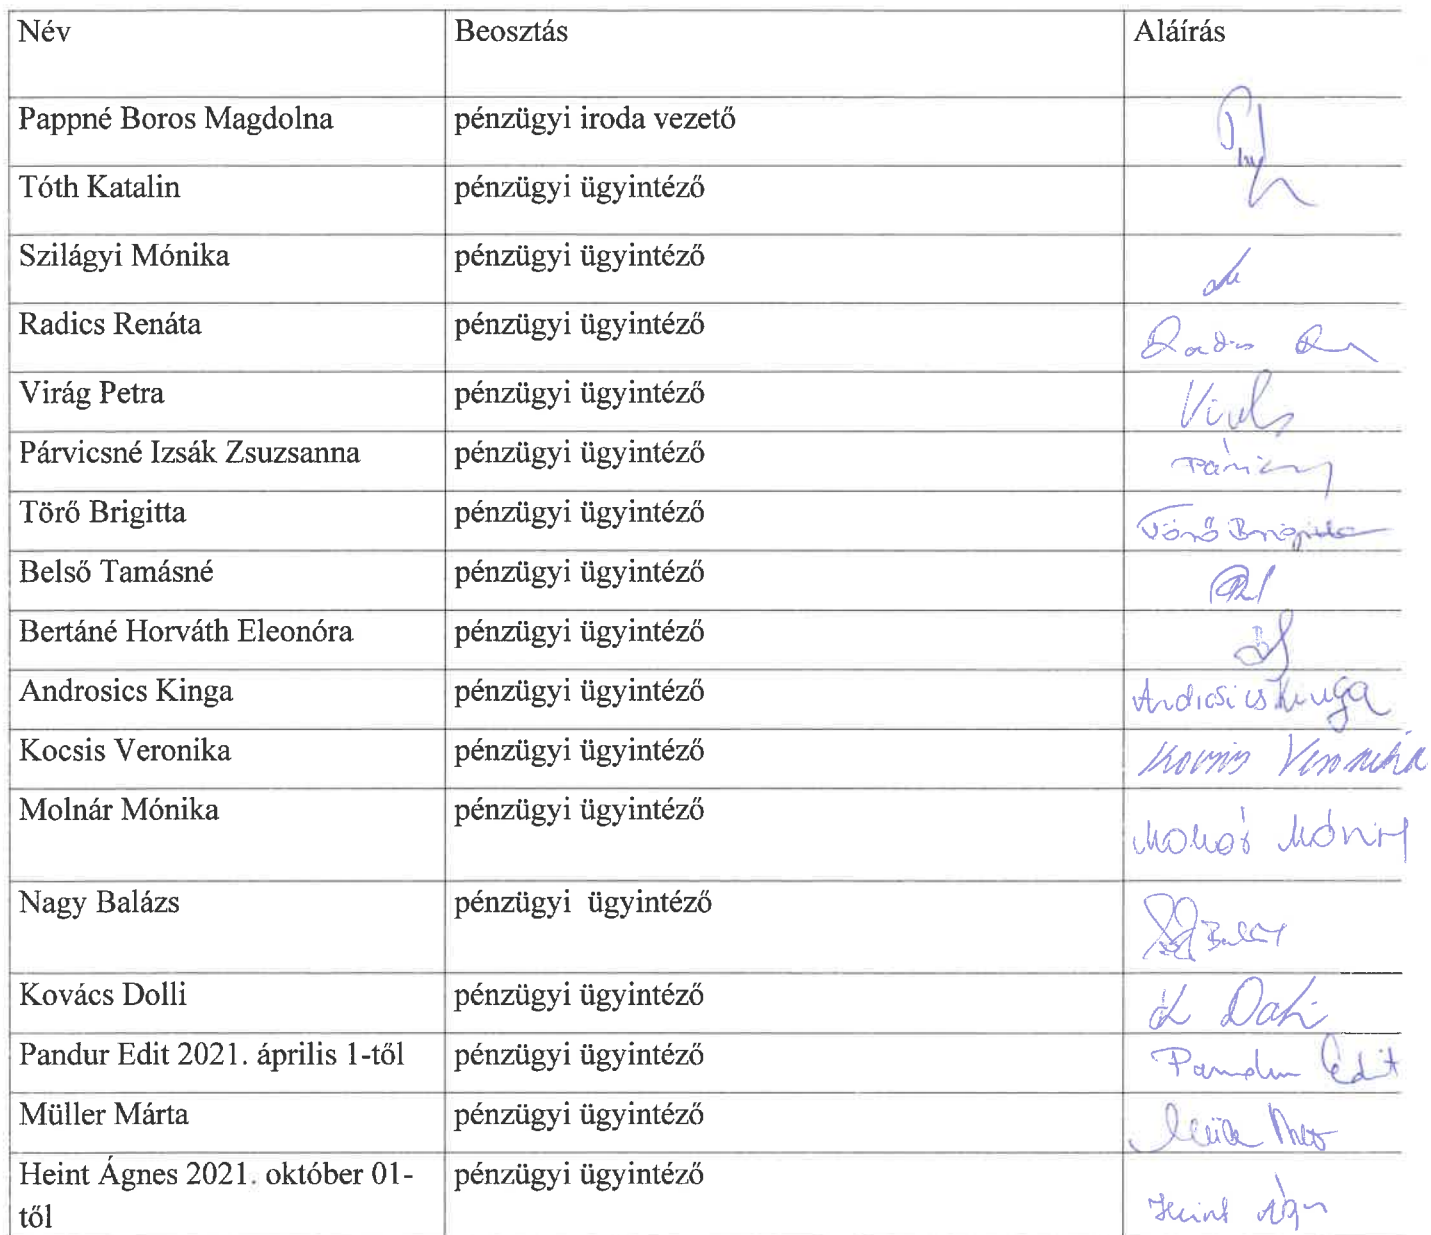 Név Beosztás Aláírás
Pappné Boros Magdolna pénzügyi iroda vezető
Tóth Katalin pénzügyi ügyintéző
Szilágyi Mónika pénzügyi ügyintéző
Radics Renáta pénzügyi ügyintéző
Virág Petra pénzügyi ügyintéző
Párvicsné Izsák Zsuzsanna pénzügyi ügyintéző
Törő Brigitta pénzügyi ügyintéző Törő Brigitta
Belső Tamásné pénzügyi ügyintéző
Bertáné Horváth Eleonóra pénzügyi ügyintéző
Androsics Kinga pénzügyi ügyintéző Androsics Kinga
Kocsis Veronika pénzügyi ügyintéző Kocsis Veronika
Molnár Mónika pénzügyi ügyintéző Molnár Mónika
Nagy Balázs pénzügyi ügyintéző
Kovács Dolli pénzügyi ügyintéző
Pandur Edit 2021. április 1-től pénzügyi ügyintéző Pandur Edit
Müller Márta pénzügyi ügyintéző
Heint Ágnes 2021. október 01- pénzügyi ügyintéző Heint Ágn
től